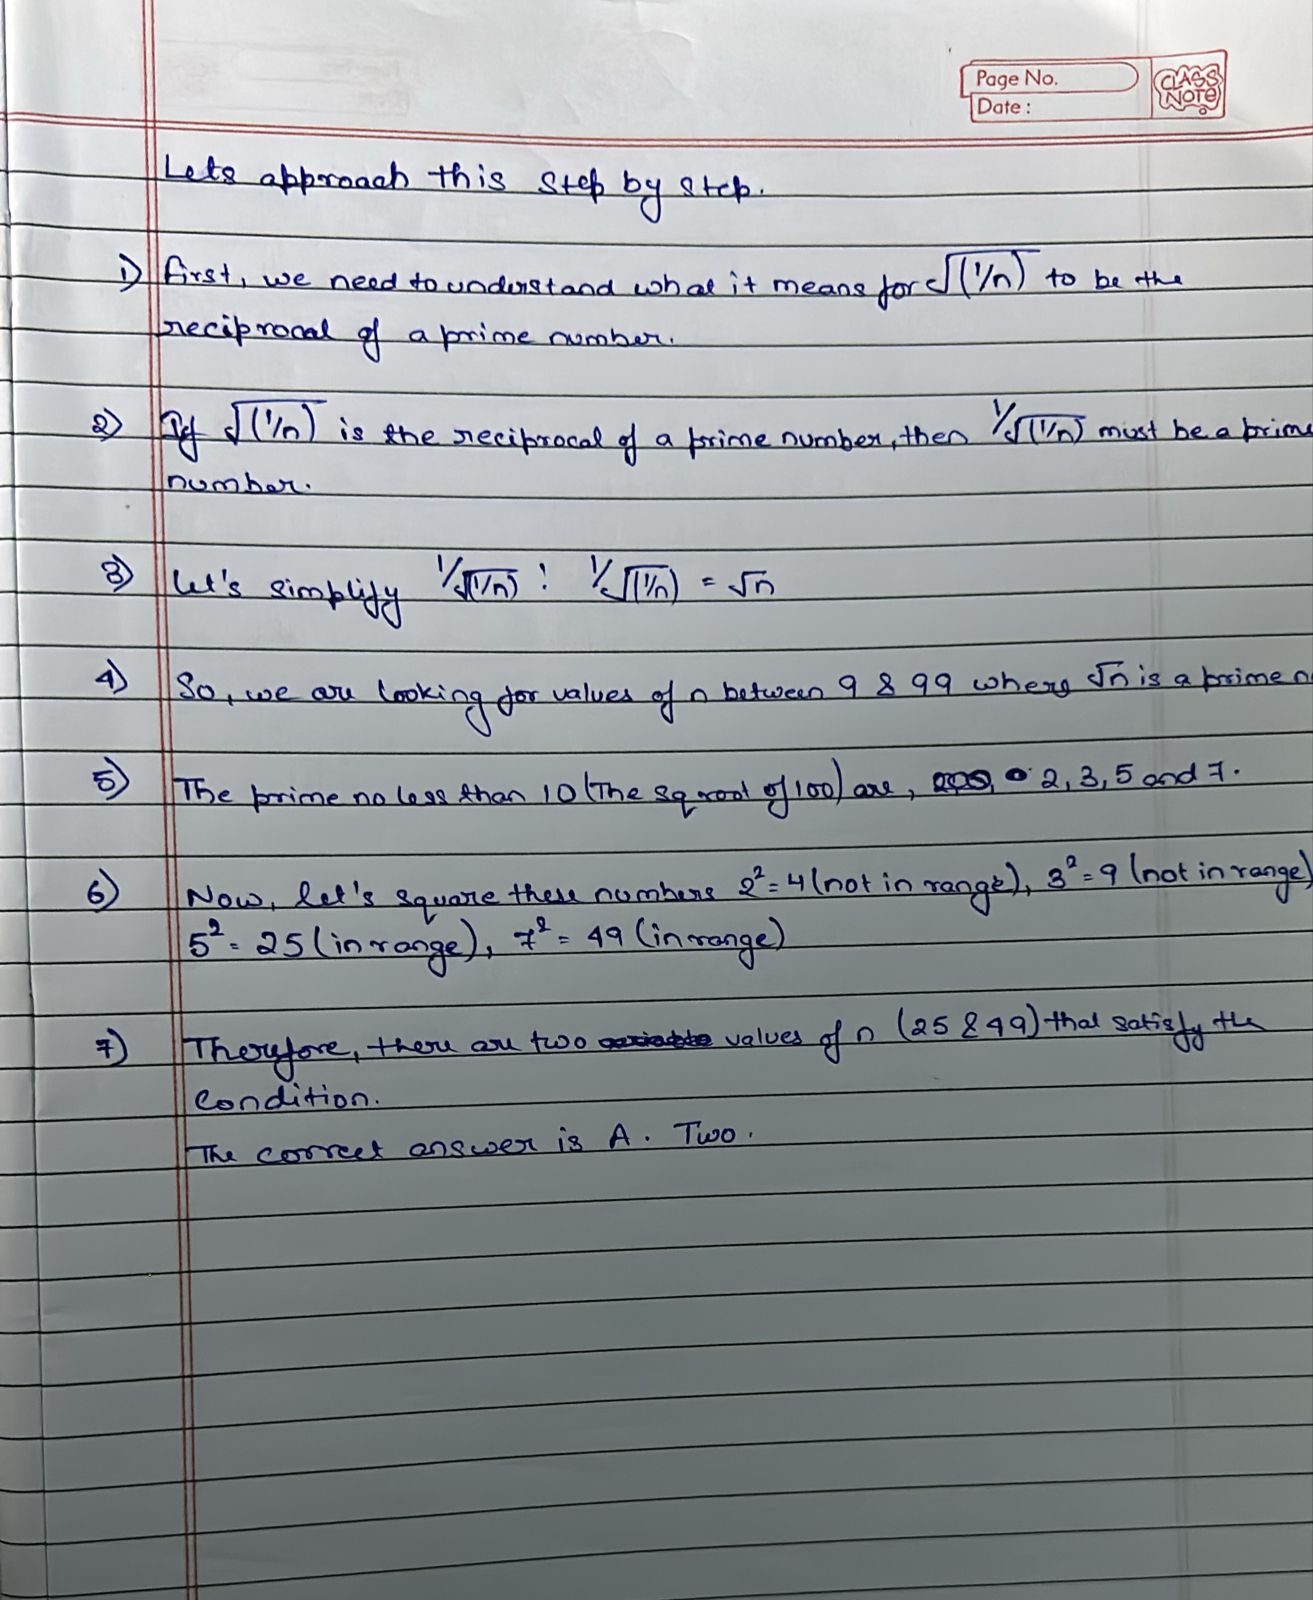 Page No.
Date :
CLASS NOTE
Lets approach this step by step.
1) first, we need to understand what it means for √(1/n) to be the
reciprocal of a prime number.
2) If √(1/n) is the reciprocal of a prime number, then 1/√(1/n) must be a prime
number.
3) Let's simplify 1/√(1/n) : 1/√(1/n) = √n
4) So, we are looking for values of n between 9 & 99 where √n is a prime n
5) The prime no less than 10 (The sq root of 100) are, 2, 3, 5 and 7.
6) Now, let's square these numbers 2² = 4 (not in range), 3² = 9 (not in range)
5² = 25 (in range), 7² = 49 (in range)
7) Therefore, there are two values of n (25 & 49) that satisfy the
condition.
The correct answer is A. Two.